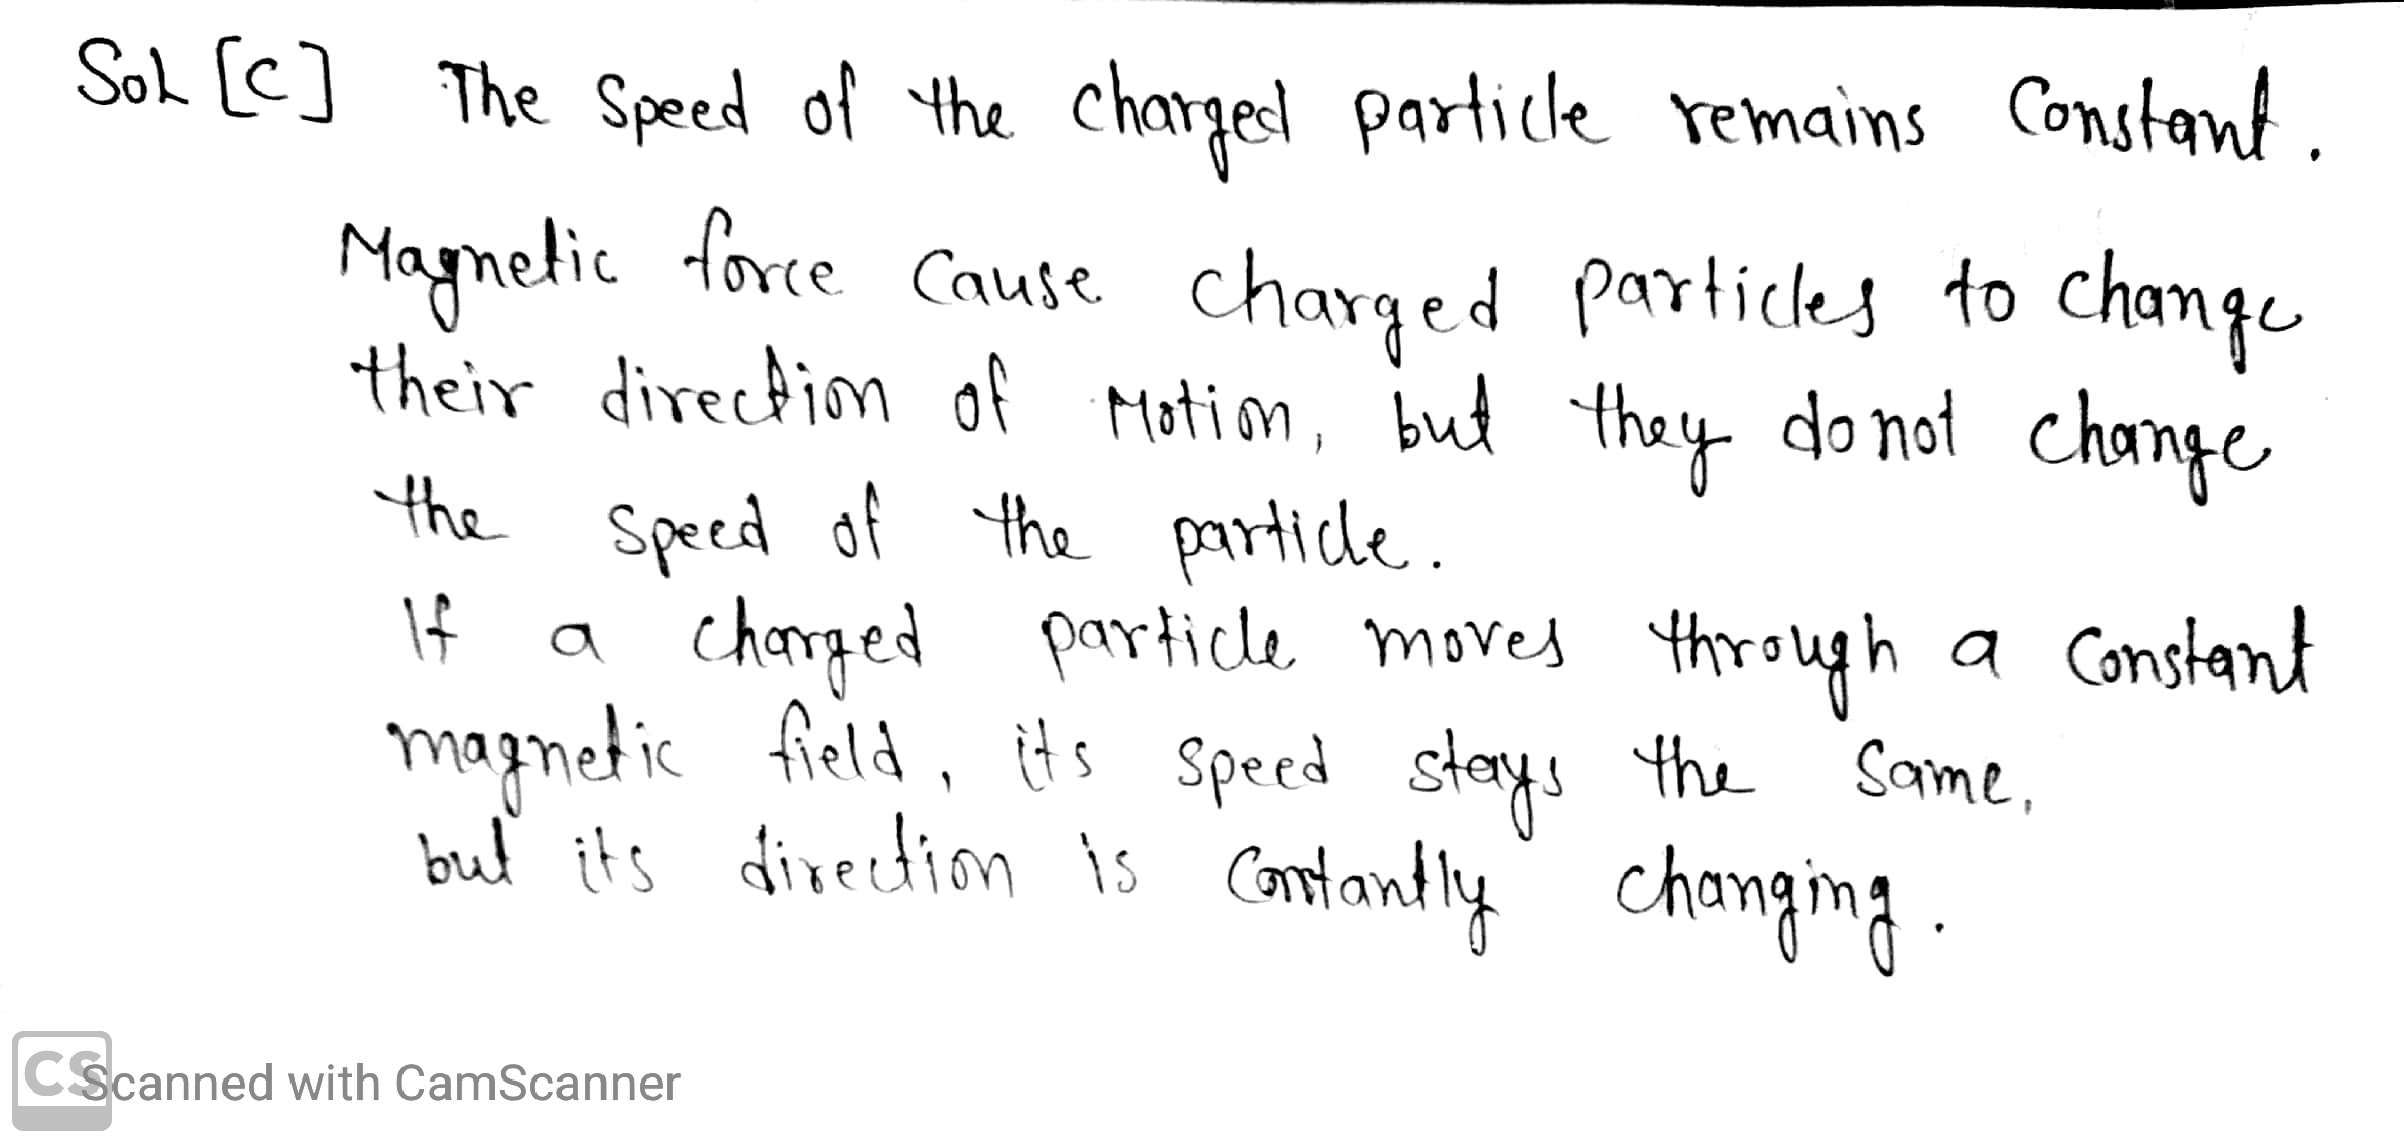 Sol [C] The Speed of the charged particle remains Constant.
Magnetic force Cause charged particles to change
their direction of Motion, but they do not change
the speed of the particle.
If a charged particle moves through a constant
magnetic field, its speed stays the same,
but its direction is constantly changing.
CS Scanned with CamScanner